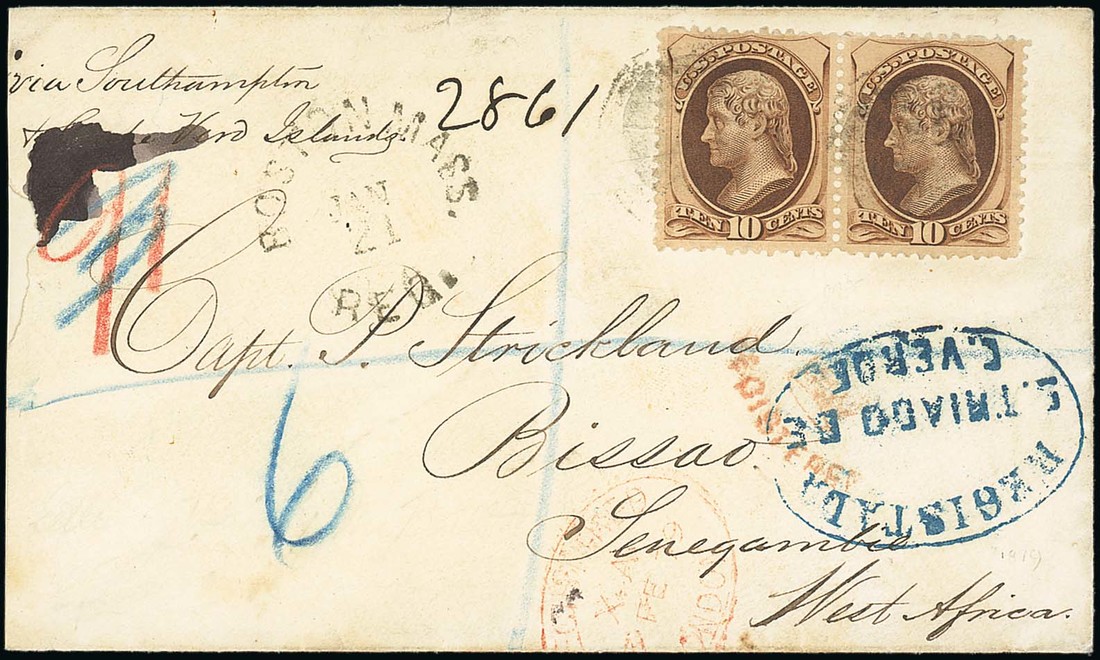 via Southampton
& Verd Islands.
2861
BOSTON MASS.
JAN
21
REG.
U.S. POSTAGE
TEN 10 CENTS
U.S. POSTAGE
TEN 10 CENTS
Capt. P. Strickland
Bissao.
Senegambia
West Africa.
6
REGISTERED
C. VERDE
REGISTADA
FE